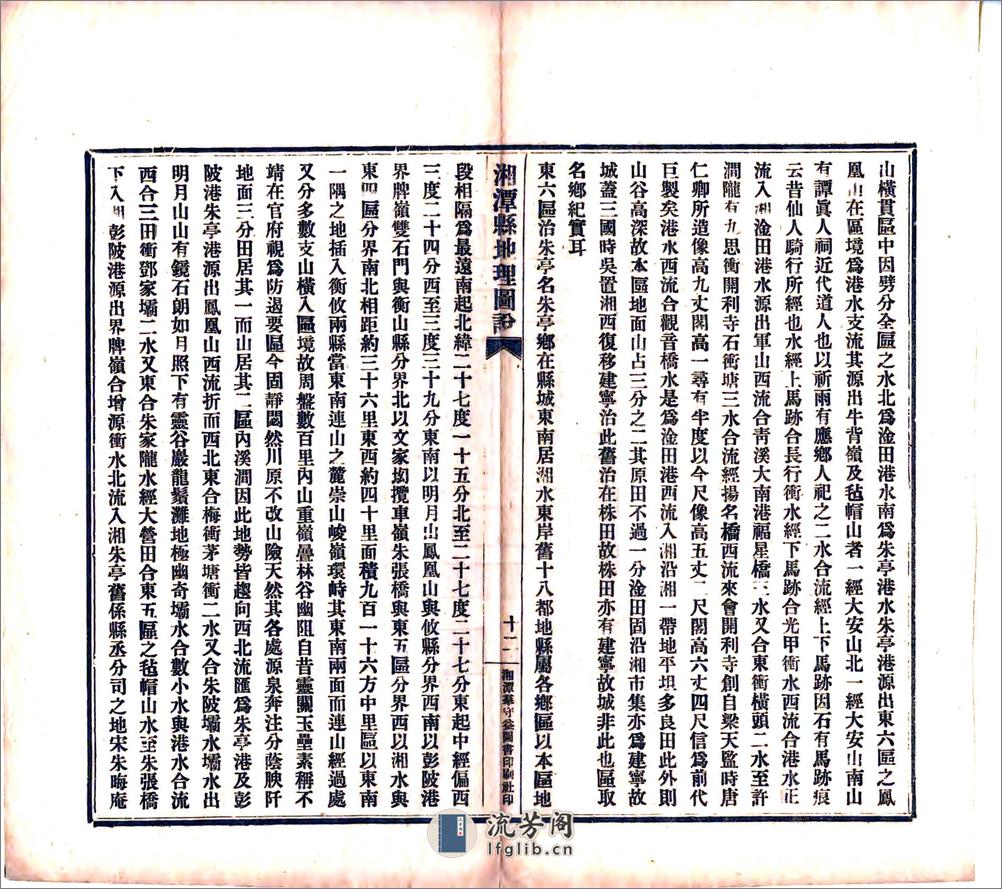 山橫貫區中因劈分全區之水北爲淦田港水南爲朱亭港水朱亭港源出東六區之鳳
凰山在區境爲港水支流其源出牛背嶺及毡帽山者一經大安山北一經大安山南山
有譚眞人祠近代道人也以祈雨有應鄉人祀之二水合流經上下馬跡因石有馬跡痕
云昔仙人騎行所經也水經上馬跡合長行衝水經下馬跡合光甲衝水西流合港水正
流入湘淦田港水源出軍山西流合靑溪大南港福星橋三水又合東衝橫頭二水至許
澗隴有九思衝開利寺石衝塘三水合流經揚名橋西流來會開利寺創自梁天監時唐
仁卿所造像高九丈閣高一尋有半度以今尺像高五丈二尺閣高六丈四尺信爲前代
巨製矣港水西流合觀音橋水是爲淦田港西流入湘沿湘一帶地平坦多良田此外則
山谷高深故本區地面山占三分之二其原田不過一分淦田固沿湘市集亦爲建寧故
城蓋三國時吳置湘西復移建寧治此舊治在株田故株田亦有建寧故城非此也區取
名鄉紀實耳
東六區治朱亭名朱亭鄉在縣城東南居湘水東岸舊十八都地縣屬各鄉區以本區地
湘潭縣地理圖說
十二
湘潭華守㳟圖書印刷社印
段相隔爲最遠南起北緯二十七度一十五分北至二十七度二十七分東起中經偏西
三度二十四分西至三度三十九分東南以明月出鳳凰山與攸縣分界西南以彭陂港
界牌嶺雙石門與衡山縣分界北以文家坳攬車嶺朱張橋與東五區分界西以湘水與
東四區分界南北相距約三十六里東西約四十里面積九百一十六方中里區以東南
一隅之地插入衡攸兩縣當東南連山之麓崇山峻嶺環峙其東南兩面而連山經過處
又分多數支山橫入區境故周盤數百里內山重嶺疊林谷幽阻自昔靈關玉壘素稱不
靖在官府視爲防遏要區今固靜閟然川原不改山險天然其各處源泉奔注分蔭腴阡
地面三分田居其一而山居其二區內溪澗因此地勢皆趨向西北流匯爲朱亭港及彭
陂港朱亭港源出鳳凰山西流折而西北東合梅衝茅塘衝二水又合朱陂壩水壩水出
明月山山有鏡石朗如月照下有靈谷巖龍鬚灘地極幽奇壩水合數小水與港水合流
西合三田衝鄧家壩二水又東合朱家隴水經大營田合東五區之毡帽山水至朱張橋
下入湘彭陂港源出界牌嶺合增源衝水北流入湘朱亭舊係縣丞分司之地宋朱晦庵
流芳阁
lfglib.cn